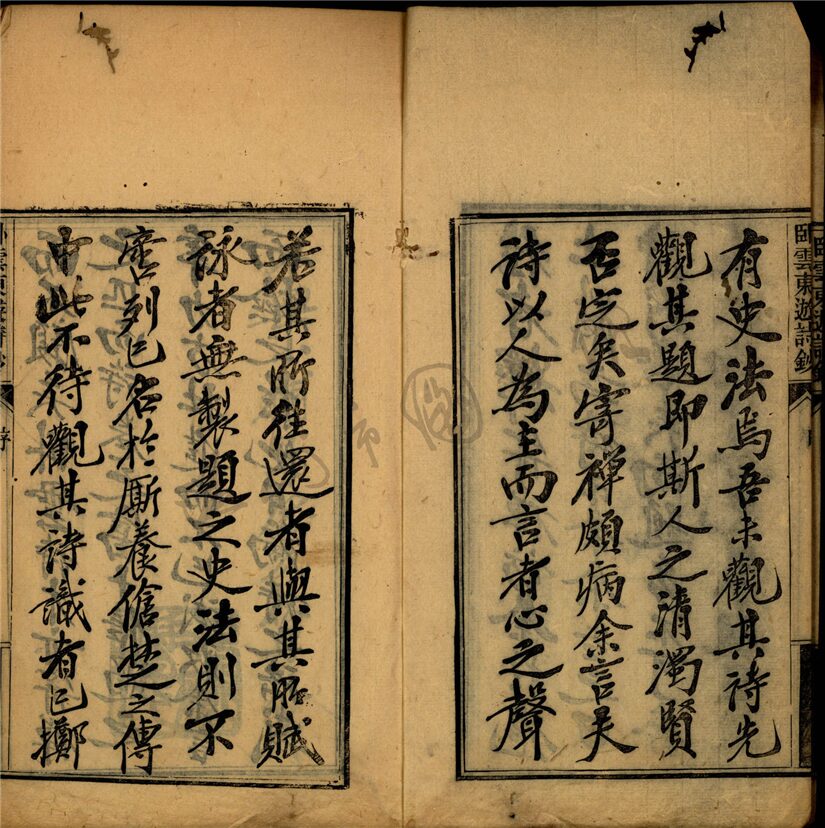 臥雲東遊詩鈔
有史法焉吾未觀其詩先
觀其題即斯人之清濁賢
否定矣寄禪頗病余言夫
詩以人為主而言者心之聲
若其所往還者與其所賦
詠者無製題之史法則不
啻列己名於厮養傖楚之傳
中此不待觀其詩識者已擲
序